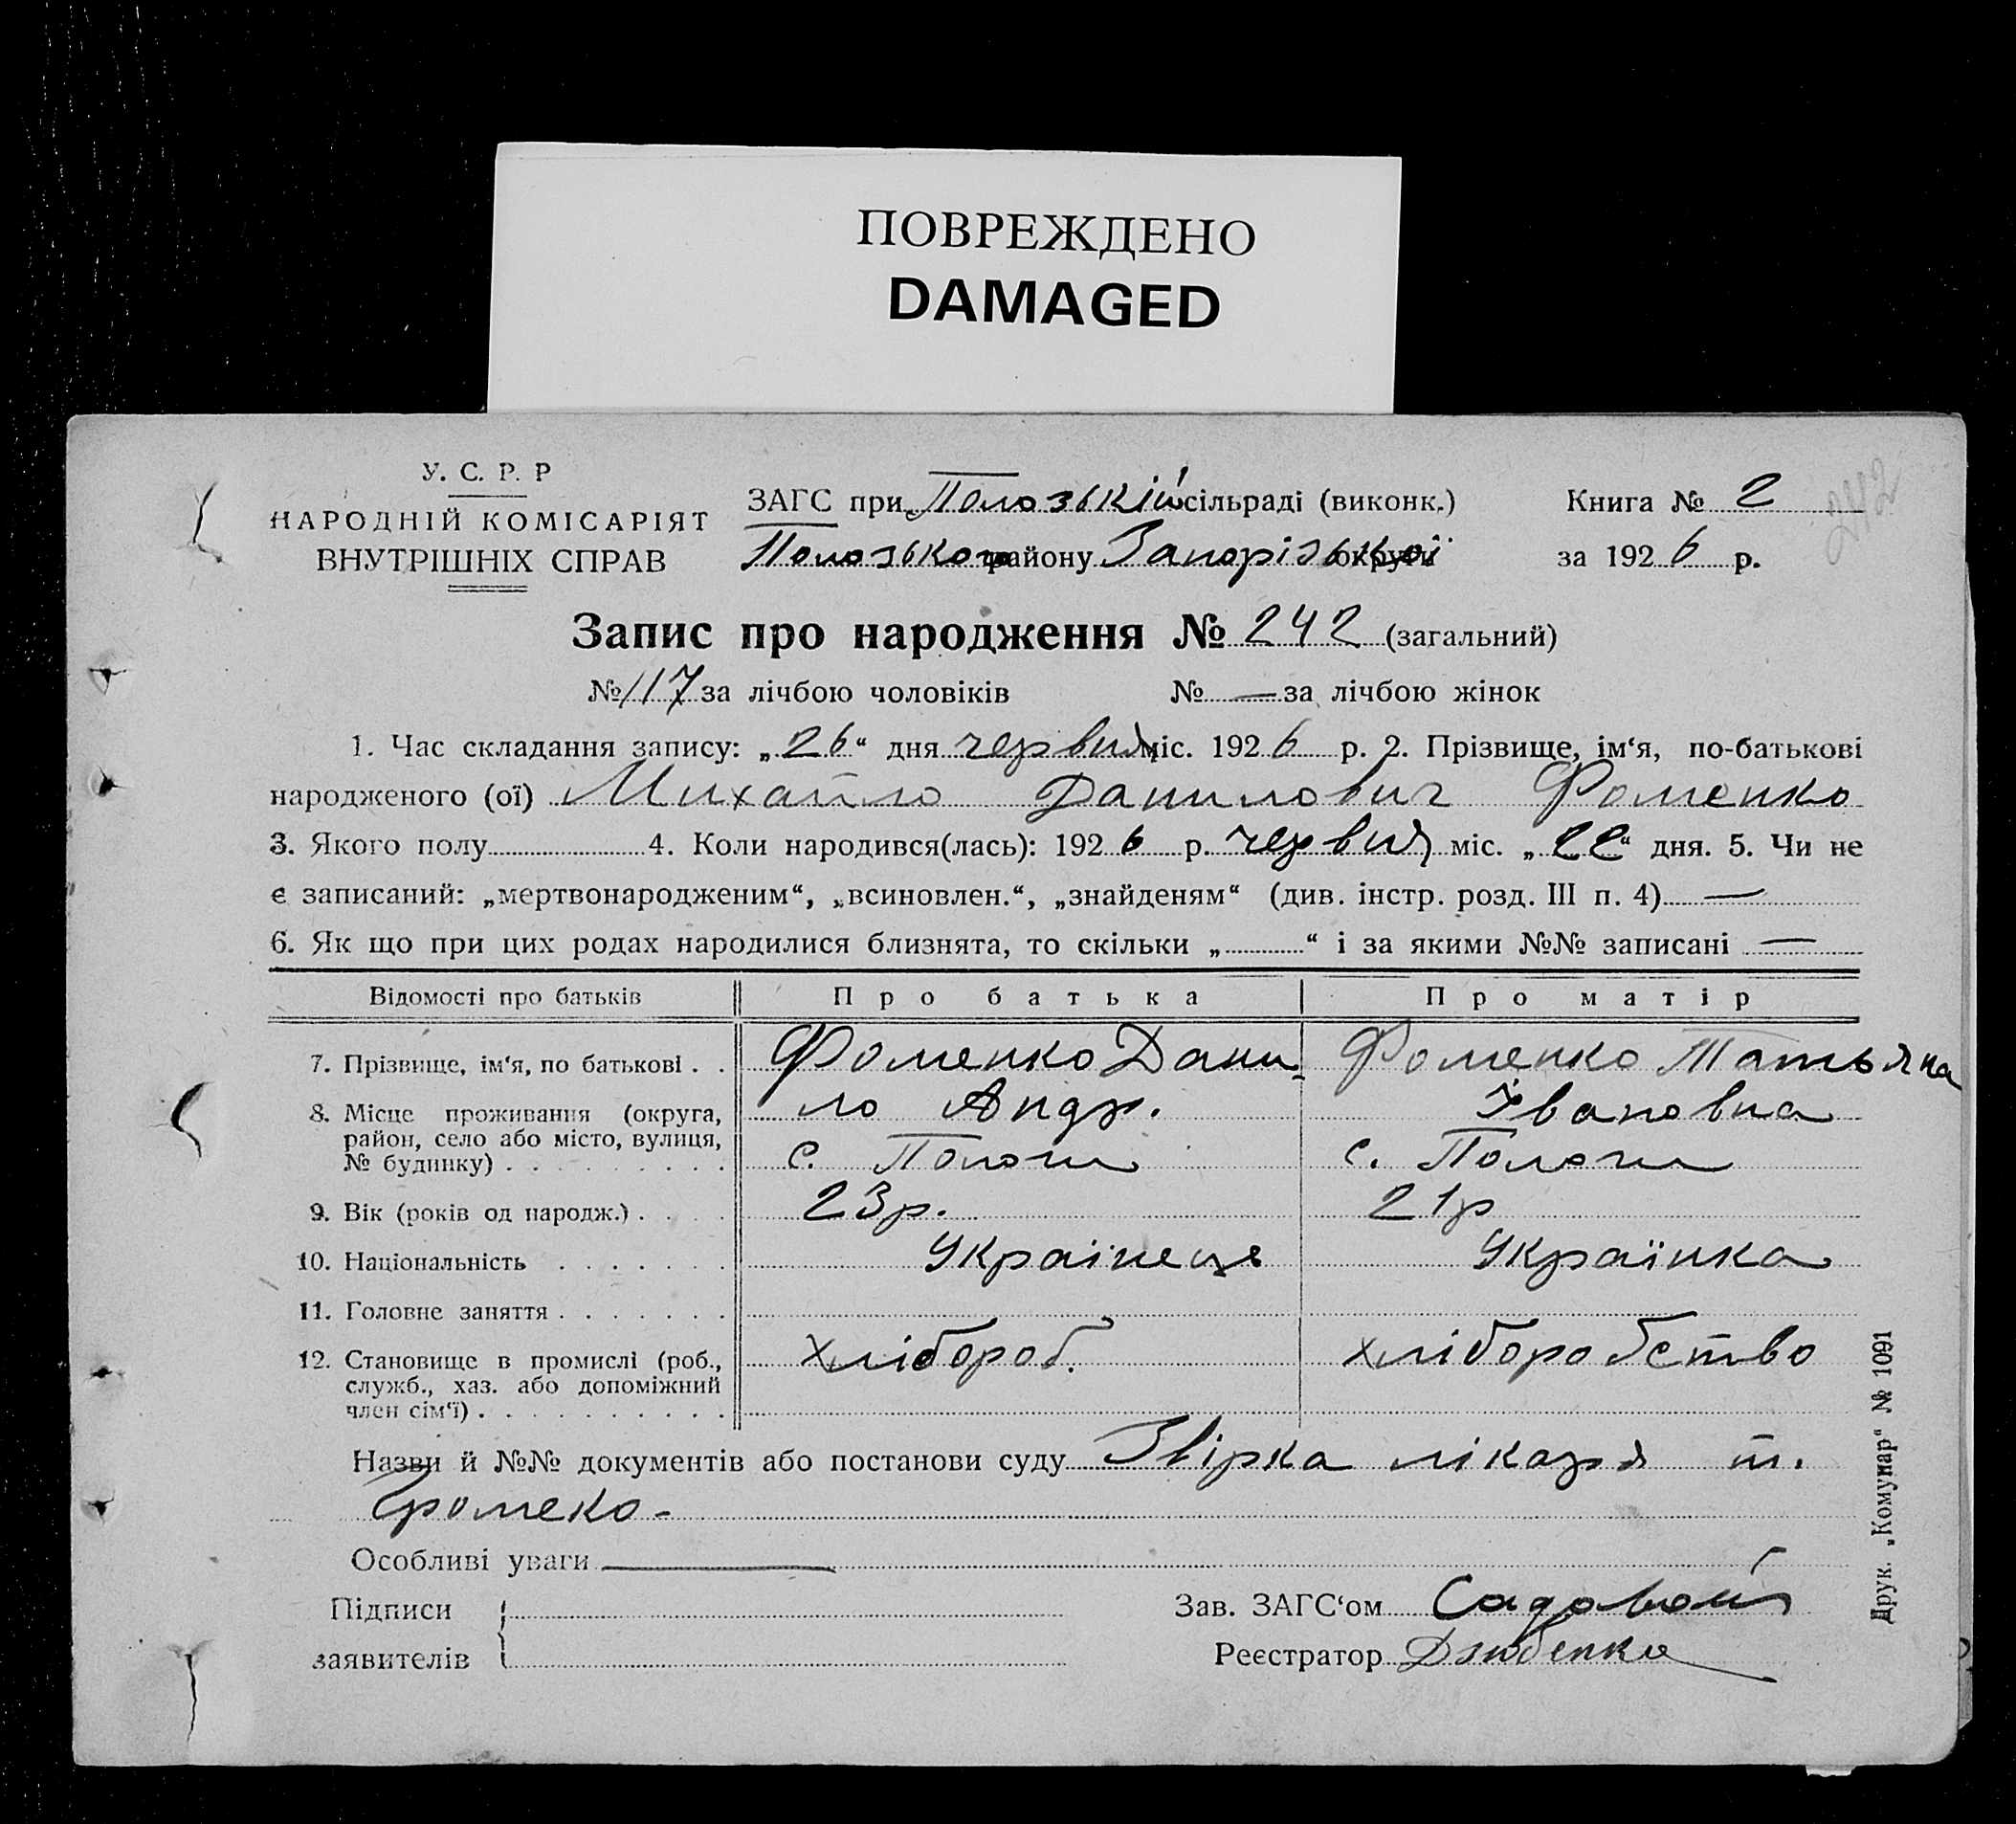 ПОВРЕЖДЕНО
DAMAGED
242
У. С. Р. Р
НАРОДНІЙ КОМІСАРІЯТ
ВНУТРІШНІХ СПРАВ
ЗАГС при Пологській сільраді (виконк.)
Пологського району Запорізької округи
Книга № 2
за 1926 р.
Запис про народження № 242 (загальний)
№ 117 за лічбою чоловіків № — за лічбою жінок
1. Час складання запису: „26“ дня червня міс. 1926 р. 2. Прізвище, ім‘я, по-батькові
народженого (ої) Михайло Данилович Фоменко
3. Якого полу 4. Коли народився(лась): 1926 р. червня міс. „22“ дня. 5. Чи не
є записаний: „мертвонародженим“, „всиновлен.“, „знайденям“ (див. інстр. розд. III п. 4) —
6. Як що при цих родах народилися близнята, то скільки „ “ і за якими №№ записані —
Відомості про батьків Про батька Про матір
7. Прізвище, ім‘я, по батькові . . Фоменко Дани- Фоменко Татьяна
8. Місце проживання (округа, ло Андр. Івановна
район, село або місто, вулиця,
№ будинку) . . . . . . . . . с. Пологи с. Пологи
9. Вік (років од народж.) . . . . 23 р. 21 р
10. Національність . . . . . . . Українець Українка
11. Головне заняття . . . . . . .
12. Становище в промислі (роб., хлібороб. хліборобство
служб., хаз. або допоміжний
член сім‘ї) . . . . . . . . . .
Назви й №№ документів або постанови суду Звірка лікаря т.
Громеко -
Особливі уваги —
Підписи
заявителів
Зав. ЗАГС‘ом Садовой
Реєстратор Дзюбенко
Друк. „Комунар“ № 1091